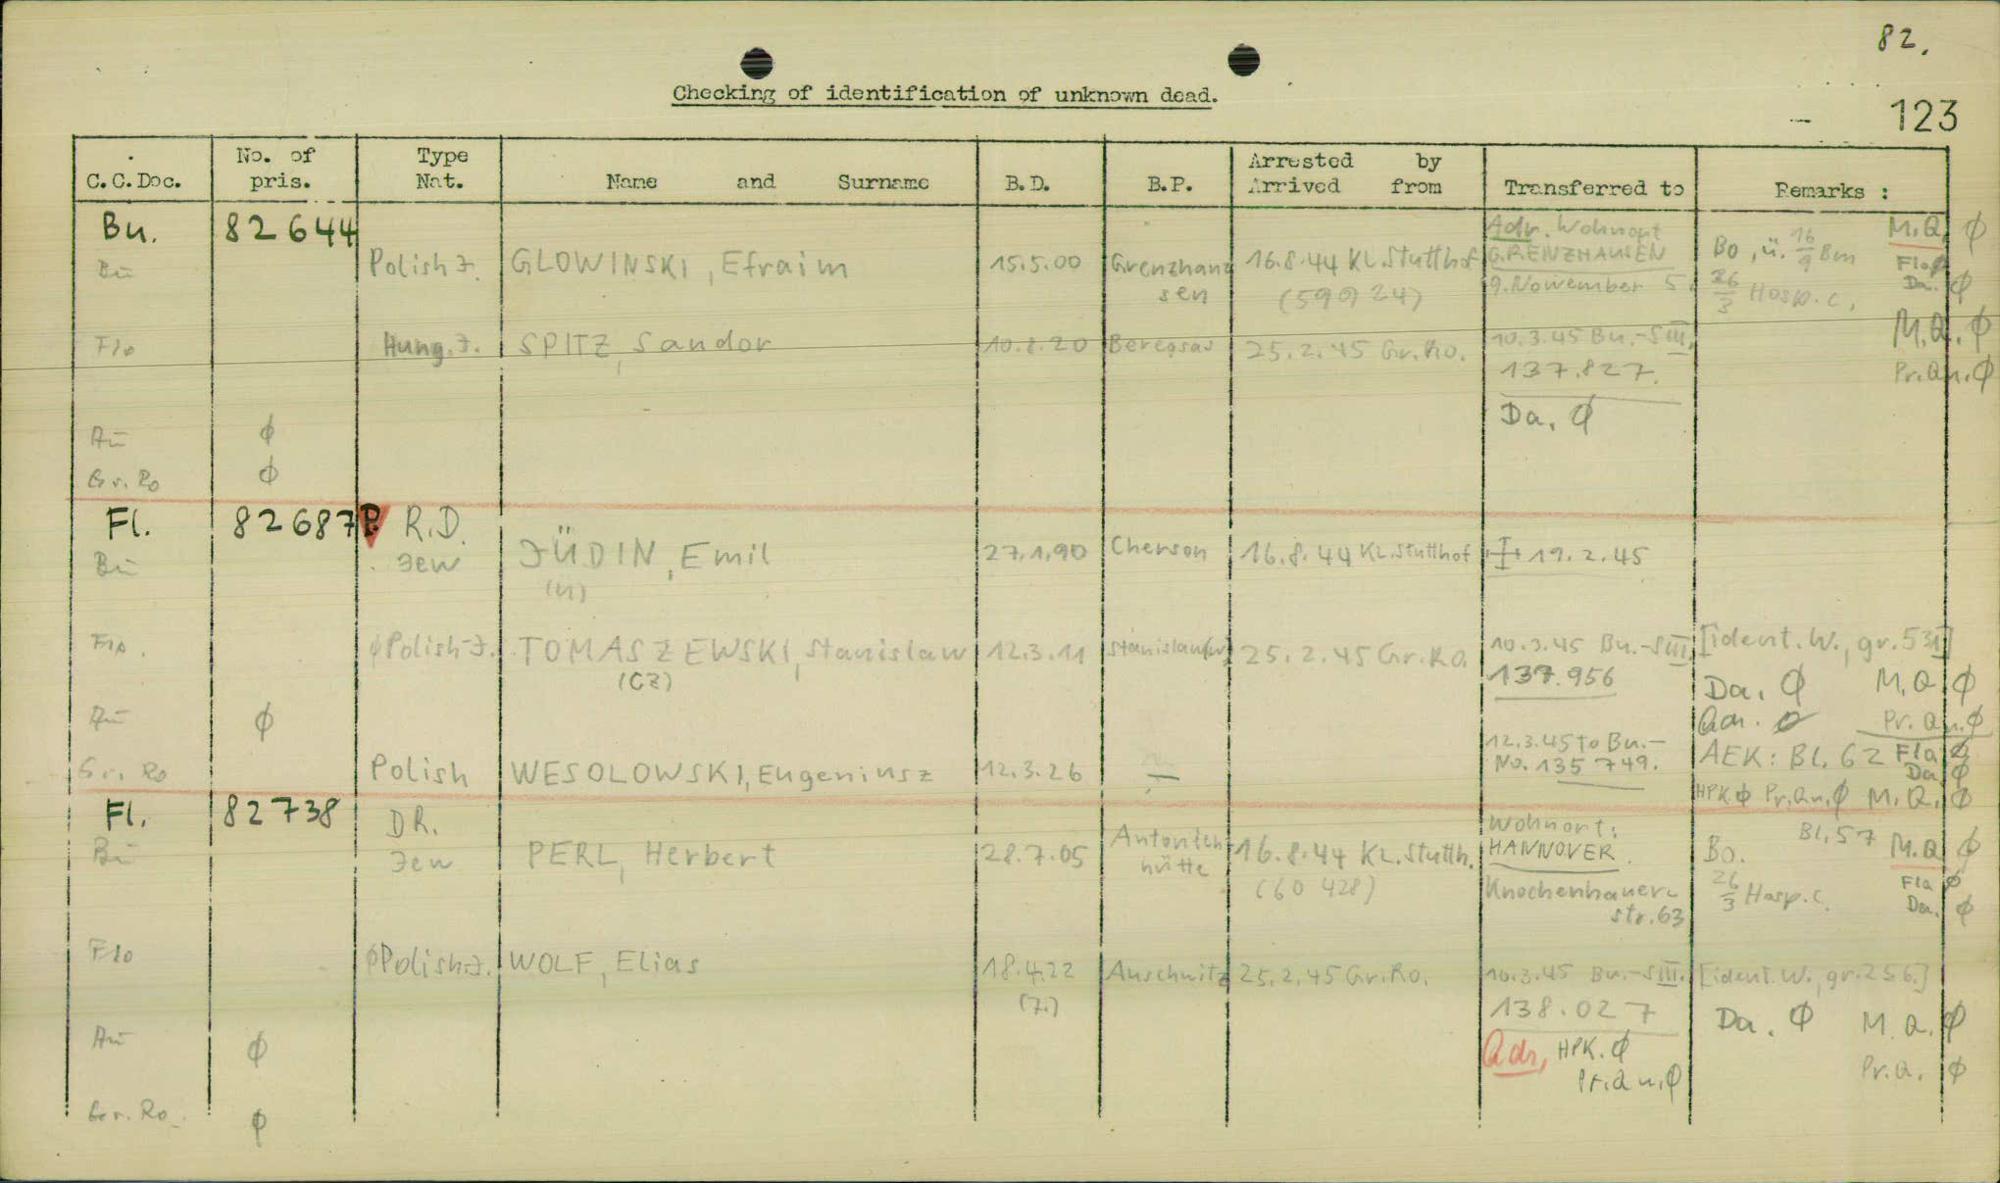 82.
Checking of identification of unknown dead.
123
C.C.Doc. No. of pris. Type Nat. Name and Surname B.D. B.P. Arrested by Arrived from Transferred to Remarks :
Bu. 82644 Adr. Wohnort M.Q. ϕ
Bū Polish J. GLOWINSKI, Efraim 15.5.00 Grenzhausen 16.8.44 KL.Stutthof GRENZHAUSEN Bo, ü. 16/9 Bm Flo ϕ
(59924) 9.November 5. 26/3 Hosp.c. Da. ϕ
Flo Hung.J. SPITZ, Sandor 10.2.20 Beregsas 25.2.45 Gr.Ro. 10.3.45 Bu.-SIII, M.Q. ϕ
137.827. Pr.Qu.ϕ
Da. ϕ
Aū ϕ
Gr. Ro ϕ
Fl. 82687 P. R.D.
Bū Jew JÜDIN, Emil 27.1.90 Cherson 16.8.44 KL.Stutthof + 19.2.45
(U)
Flo. ϕPolish-J. TOMASZEWSKI, Stanislaw 12.3.11 25.2.45 Gr.Ro. 10.3.45 Bu.-SIII, [ident.W., gr.531]
(CZ) 137.956 Da. ϕ M.Q. ϕ
Aū ϕ Adr. ϕ Pr. Qu.ϕ
Gr. Ro Polish WESOLOWSKI, Eugeniusz 12.3.26 — 12.3.45 to Bu.- AEK: Bl. 62 Fla ϕ
No. 135 749. Da ϕ
HPK ϕ Pr.Qu.ϕ M.Q. ϕ
Fl. 82738 DR. Wohnort: Bl.57
Bū Jew PERL, Herbert 28.7.05 Antonienhütte 16.8.44 KL.Stutth. HANNOVER. Bo. M.Q. ϕ
(60 428) Knochenhauer- 26/3 Hosp.c. Fla ϕ
str.63 Da. ϕ
Flo ϕPolish-J. WOLF, Elias 18.4.22 Auschwitz 25.2.45 Gr.Ro. 10.3.45 Bu.-SIII. [ident.W., gr.256.]
(7.) 138.027 Da. ϕ M.Q. ϕ
Aū ϕ Adr, HPK. ϕ Pr.Q. ϕ
Pr.Qu.ϕ
Gr. Ro. ϕ